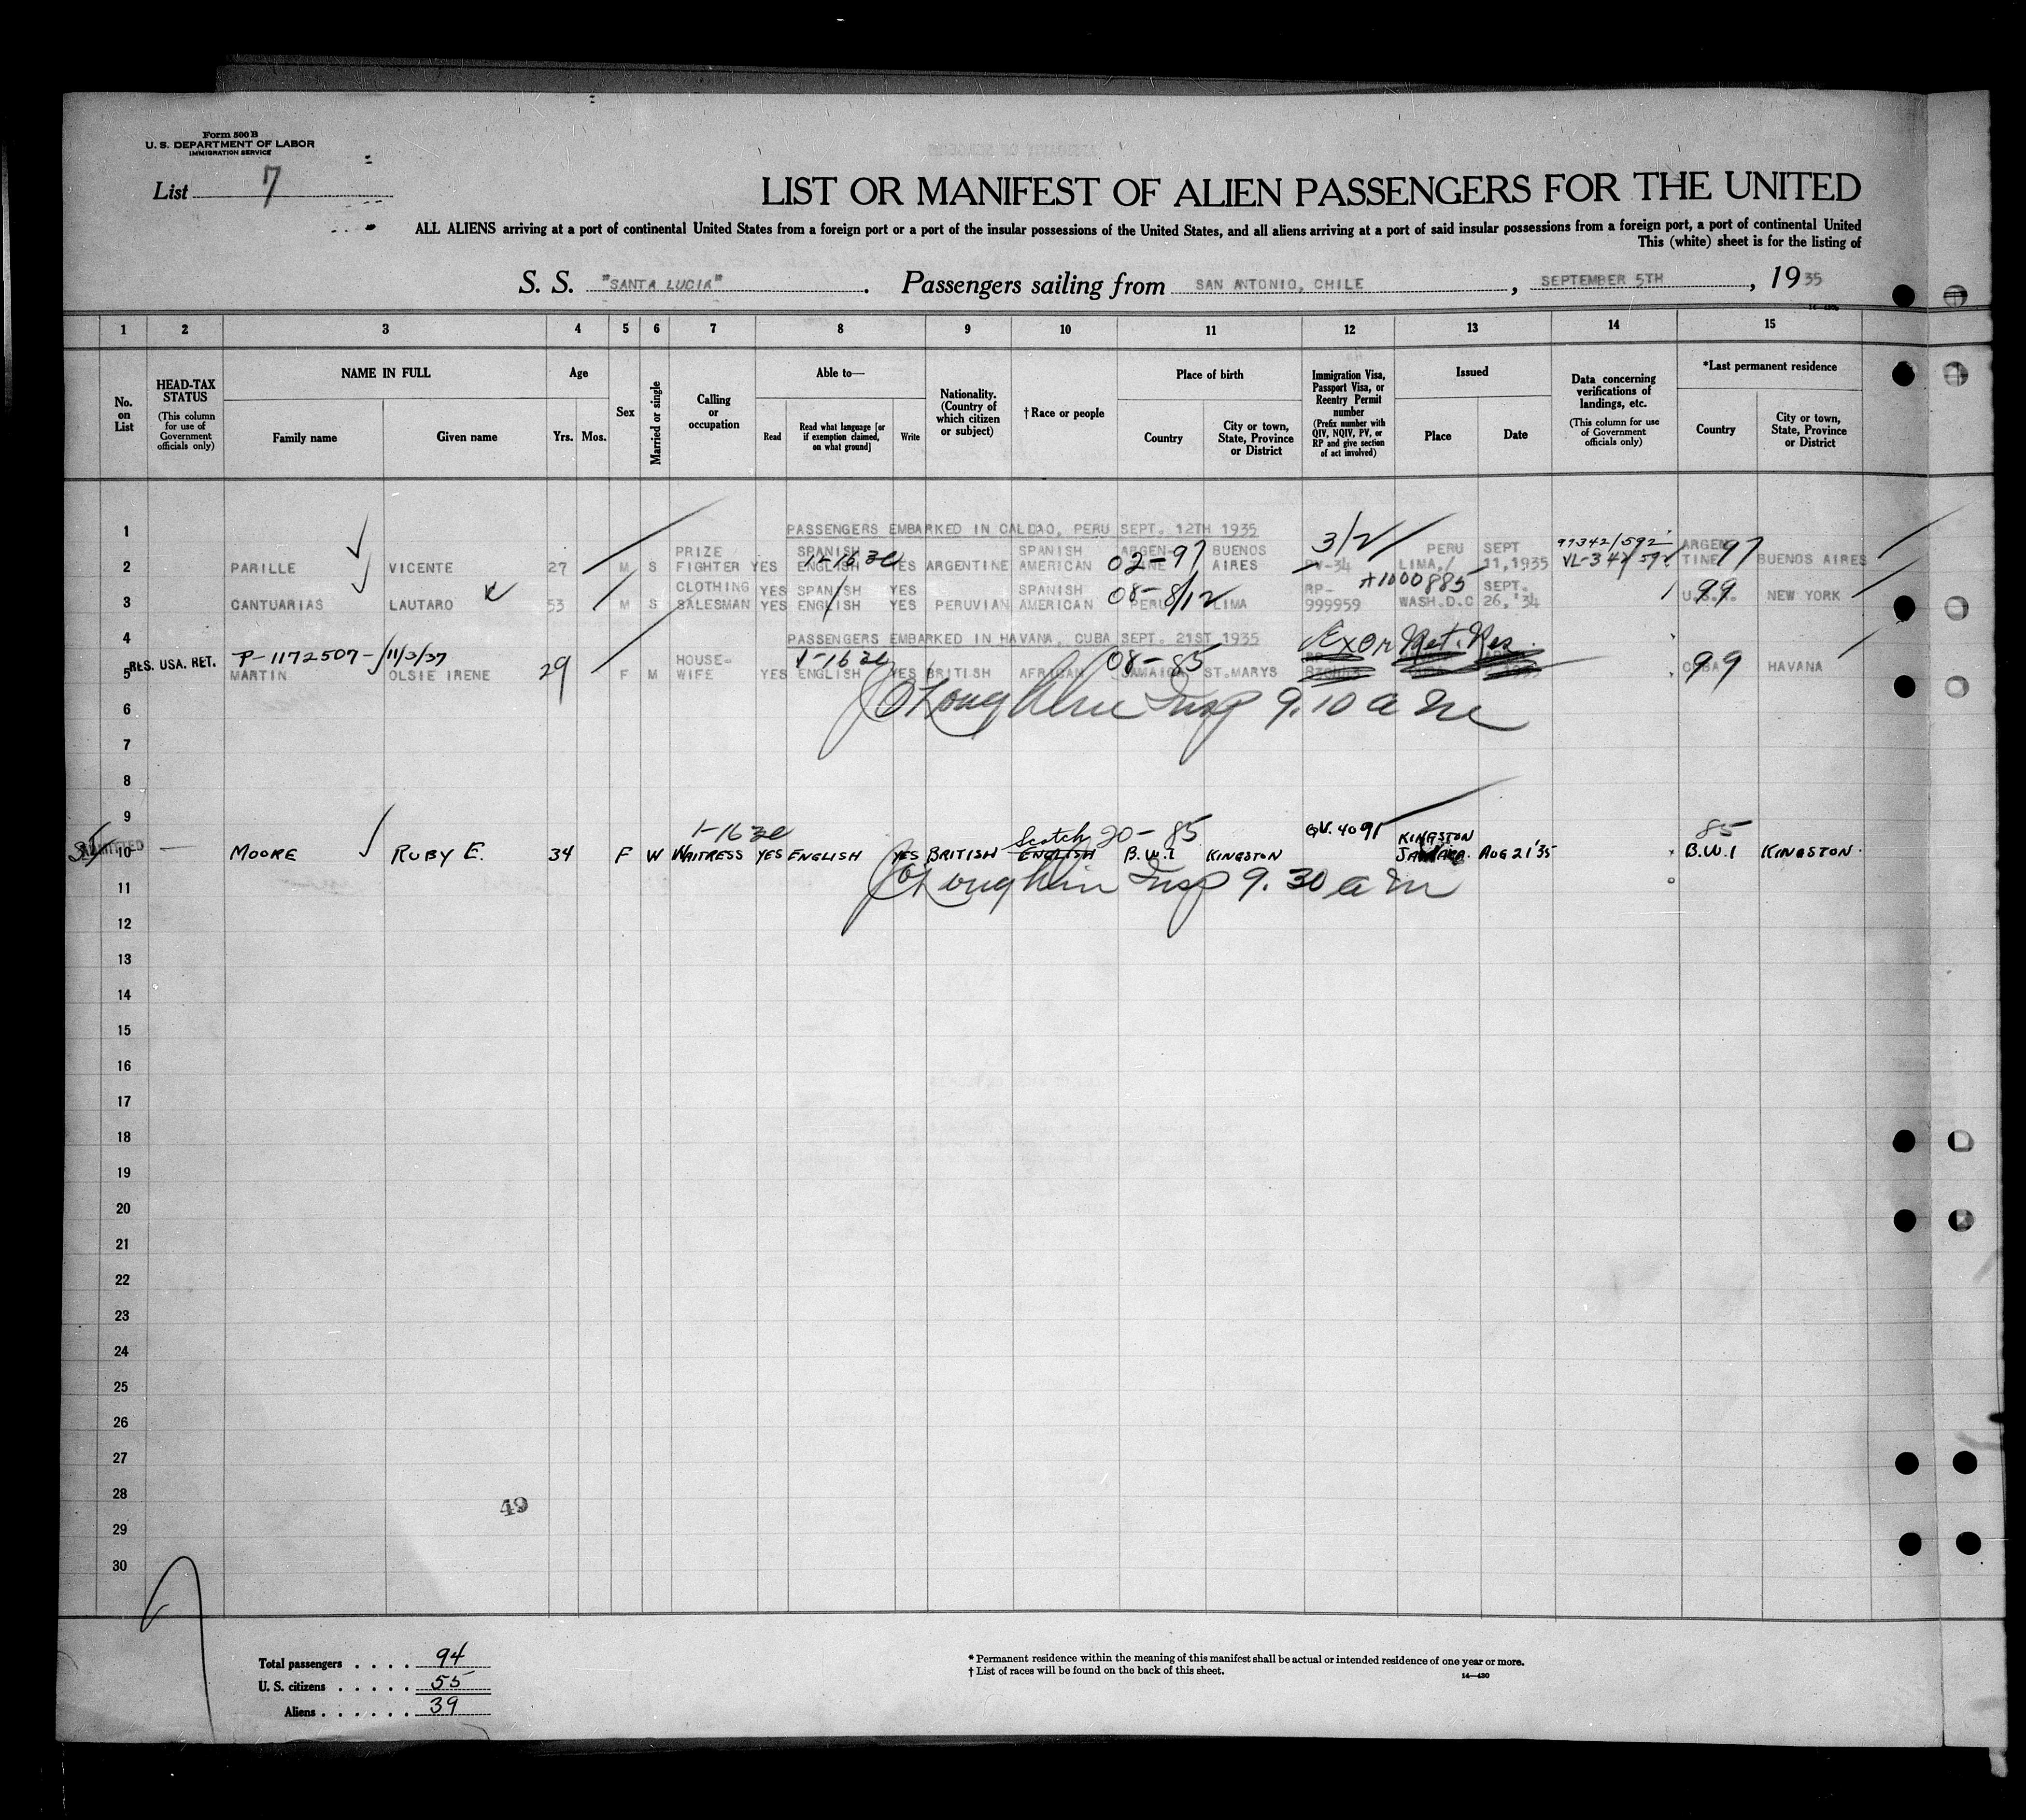 Form 500 B
U. S. DEPARTMENT OF LABOR
IMMIGRATION SERVICE
List 7
LIST OR MANIFEST OF ALIEN PASSENGERS FOR THE UNITED
ALL ALIENS arriving at a port of continental United States from a foreign port or a port of the insular possessions of the United States, and all aliens arriving at a port of said insular possessions from a foreign port, a port of continental United
This (white) sheet is for the listing of
S. S. "SANTA LUCIA". Passengers sailing from SAN ANTONIO, CHILE, SEPTEMBER 5TH, 1935
1 2 3 4 5 6 7 8 9 10 11 12 13 14 15
No. on List
HEAD-TAX STATUS (This column for use of Government officials only)
NAME IN FULL
Family name Given name
Age
Yrs. Mos.
Sex
Married or single
Calling or occupation
Able to—
Read
Read what language [or if exemption claimed, on what ground]
Write
Nationality. (Country of which citizen or subject)
†Race or people
Place of birth
Country
City or town, State, Province or District
Immigration Visa, Passport Visa, or Reentry Permit number (Prefix number with QIV, NQIV, PV, or RP and give section of act involved)
Issued
Place Date
Data concerning verifications of landings, etc. (This column for use of Government officials only)
*Last permanent residence
Country
City or town, State, Province or District
1 PASSENGERS EMBARKED IN CALLAO, PERU SEPT. 12TH 1935
3/2
PRIZE SPANISH 1-1630 SPANISH ARGEN- 02-97 BUENOS PERU SEPT 97342/592 ARGEN
2 PARILLE VICENTE 27 M S FIGHTER YES ENGLISH YES ARGENTINE AMERICAN TINE AIRES PV-34 LIMA, 11,1935 TINE 97 BUENOS AIRES
CLOTHING YES SPANISH YES SPANISH 08-8/12 RP- A1000885 SEPT.
3 CANTUARIAS LAUTARO 53 M S SALESMAN YES ENGLISH YES PERUVIAN AMERICAN PERU LIMA 999959 WASH.D.C 26,'34 U.S.A. 99 NEW YORK
4 PASSENGERS EMBARKED IN HAVANA, CUBA SEPT. 21ST 1935
RES. USA. RET. P-1172507- 11/3/37 HOUSE- 1-1630 08-85 Ret. Res.
5 MARTIN OLSIE IRENE 29 F M WIFE YES ENGLISH YES BRITISH AFRICAN JAMAICA ST.MARYS CUBA 99 HAVANA
6 Insp 9.10 a m
7
8
9
1-1630 Scotch 20-85 QV. 4091 KINGSTON 85
ADMITTED 10 MOORE RUBY E. 34 F W WAITRESS YES ENGLISH YES BRITISH ENGLISH B.W.I KINGSTON JAMAICA. AUG 21'35 B.W.I KINGSTON.
11 Insp 9.30 a m
12
13
14
15
16
17
18
19
20
21
22
23
24
25
26
27
28
49
29
30
Total passengers . . . . 94
U. S. citizens . . . . . 55
Aliens . . . . . . 39
* Permanent residence within the meaning of this manifest shall be actual or intended residence of one year or more.
† List of races will be found on the back of this sheet.
14—430